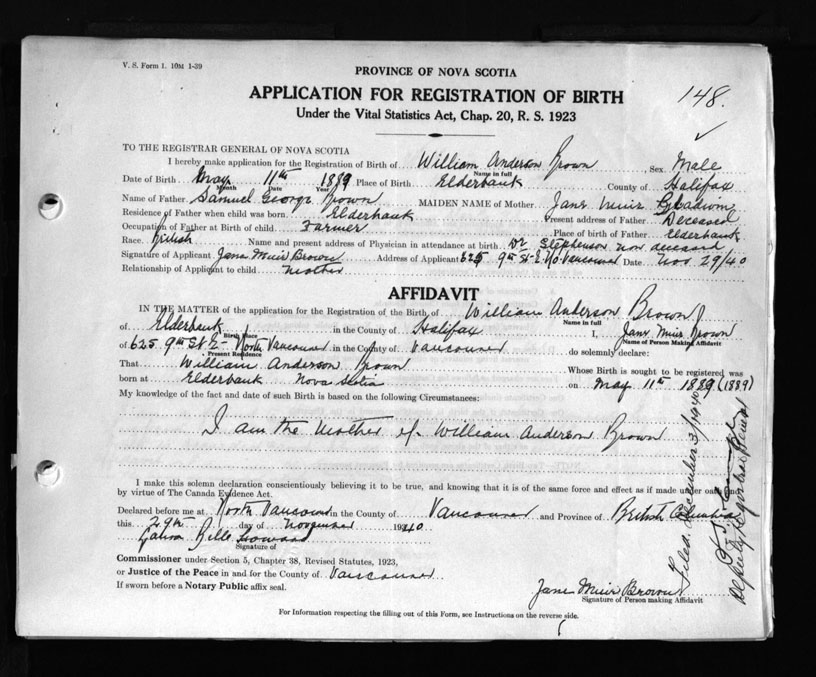 V. S. Form 1. 10M 1-39
PROVINCE OF NOVA SCOTIA
APPLICATION FOR REGISTRATION OF BIRTH
148.
Under the Vital Statistics Act, Chap. 20, R. S. 1923
TO THE REGISTRAR GENERAL OF NOVA SCOTIA
I hereby make application for the Registration of Birth of William Anderson Brown, Sex Male
Name in full
Date of Birth May 11th 1889 Place of Birth Elderbank County of Halifax
Month Date Year
Name of Father Samuel George Brown MAIDEN NAME of Mother Jane Muir
Residence of Father when child was born Elderbank Present address of Father Deceased
Occupation of Father at Birth of child Farmer Place of birth of Father Elderbank
Race British Name and present address of Physician in attendance at birth Dr Stephenson now deceased
Signature of Applicant Jane Muir Brown Address of Applicant 625 9th St. E. No. Vancouver Date Nov 29/40
Relationship of Applicant to child mother
AFFIDAVIT
IN THE MATTER of the application for the Registration of the Birth of William Anderson Brown
Name in full
of Elderbank in the County of Halifax I, Jane Muir Brown
Birth Place Name of Person Making Affidavit
of 625 9th St E North Vancouver in the County of Vancouver do solemnly declare:
Present Residence
That William Anderson Brown Whose Birth is sought to be registered was
born at Elderbank Nova Scotia on May 11th 1889 (1889)
My knowledge of the fact and date of such Birth is based on the following Circumstances:
I am the mother of William Anderson Brown
I make this solemn declaration conscientiously believing it to be true, and knowing that it is of the same force and effect as if made under oath
by virtue of The Canada Evidence Act.
Declared before me at North Vancouver in the County of Vancouver and Province of British Columbia
this 29th day of November 1940
Belle Howard
Signature of
Commissioner under Section 5, Chapter 38, Revised Statutes, 1923,
or Justice of the Peace in and for the County of Vancouver
If sworn before a Notary Public affix seal.
Jane Muir Brown
Signature of Person making Affidavit
For Information respecting the filling out of this Form, see Instructions on the reverse side.
Filed December 3/1940
Deputy Registrar General